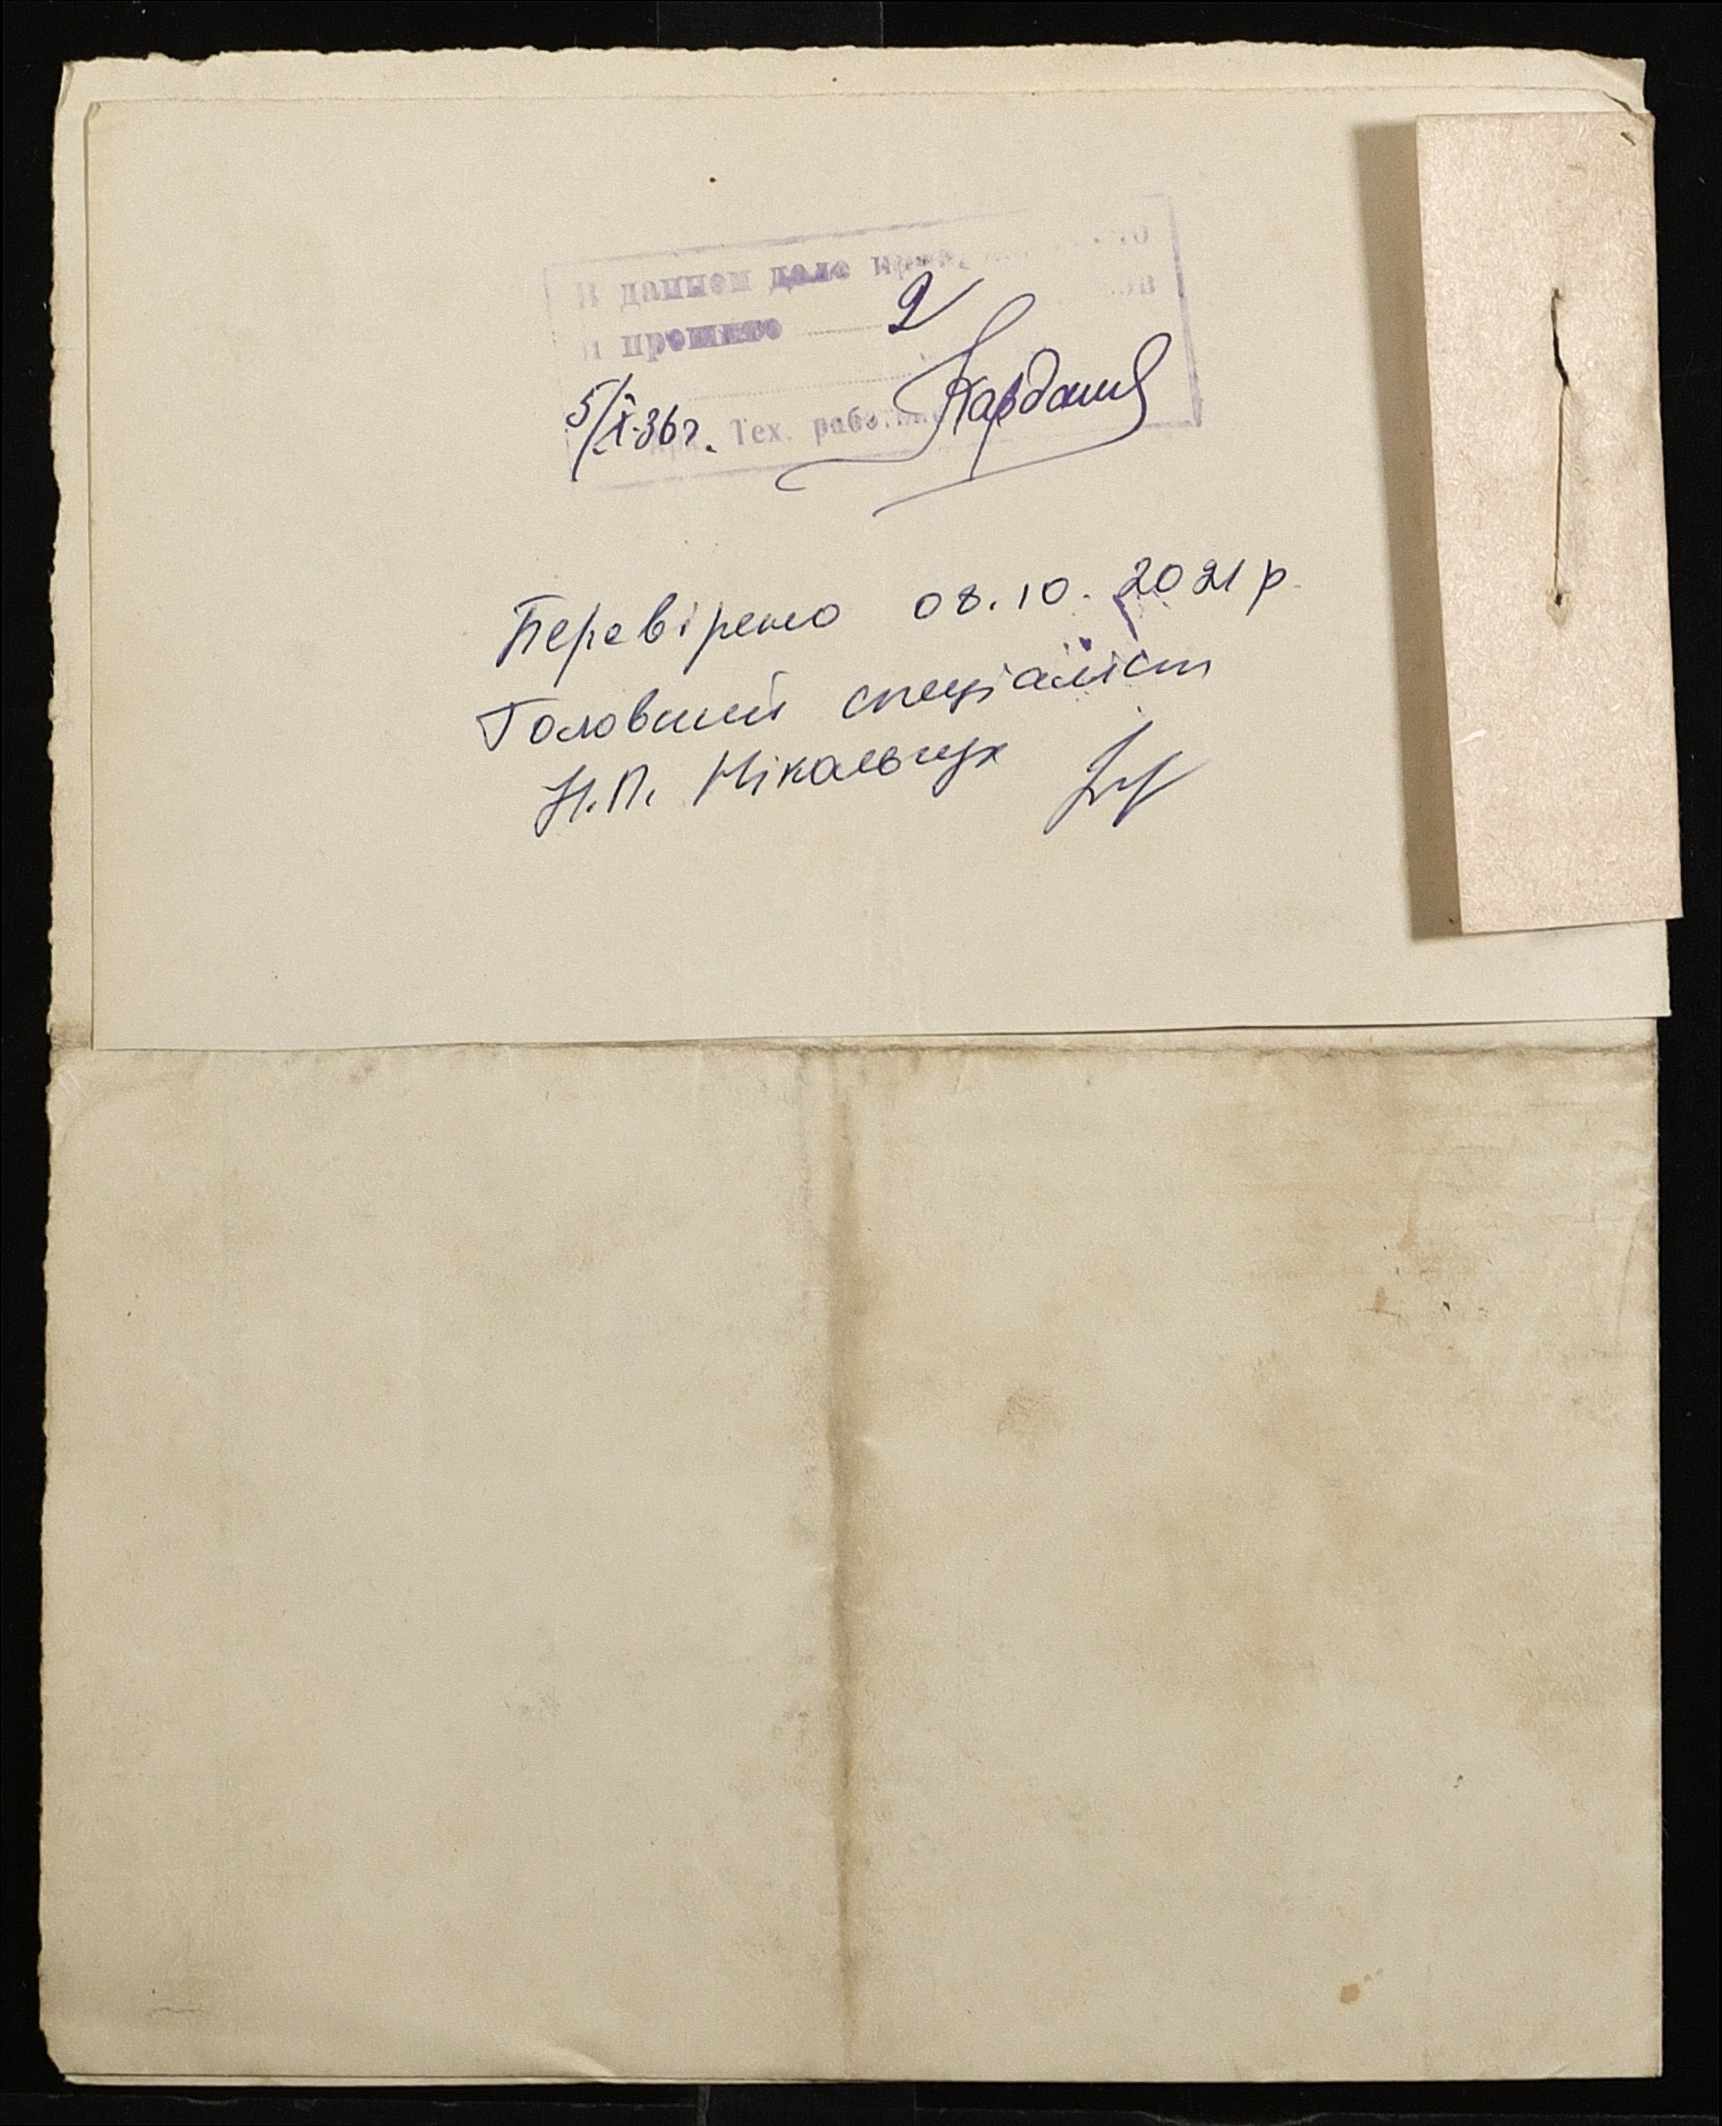 В данном деле
и прошито 2
5/X-36г. Тех. работник
Перевірено 08.10.2021 р.
Головний спеціаліст
Н.П. Мікальчук